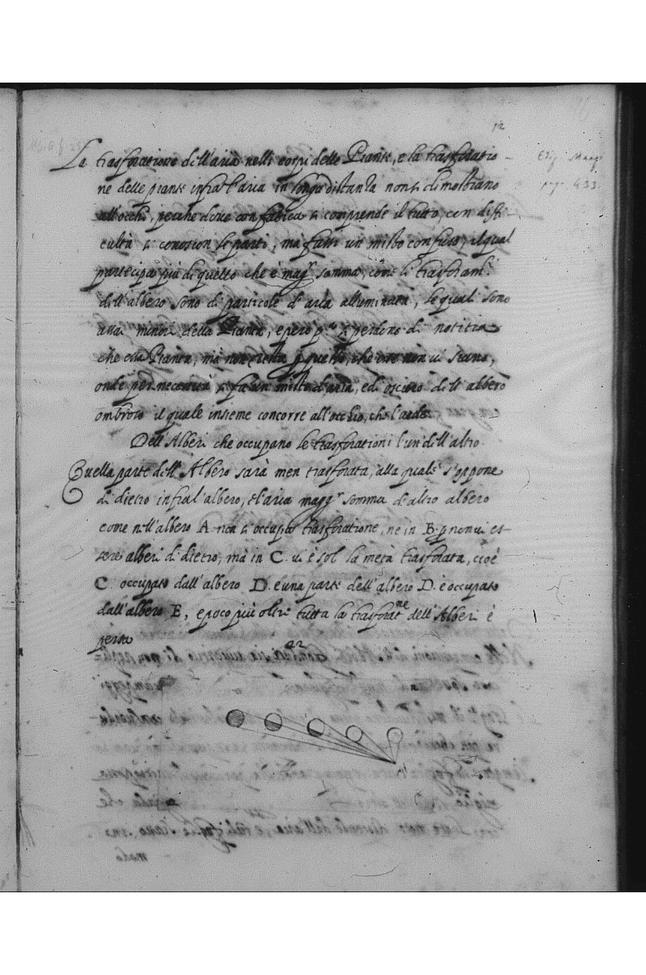 12
La trasforatione dell'aria nelli corpi delle Piante, e la trasforatio
ne delle piante infra l'aria in longa distanza non si dimostrano
all'occhi, perche dove con fatica si comprende il tutto, con diffi
cultà si conoscon le parti, ma fassi un misto confuso, il qual
partecipa più di quello che è magg.r somma, come li trasforam.ti
dell'albero sono di particole d'aria alluminata, le quali sono
assai minori della Pianta, e però p.a si perdono di notitia
che essa Pianta, ma non resta p questo, che non vi siano,
onde per necessità si fa un misto d'aria, ed oscuro dell'albero
ombroso il quale insieme concorre all'occhio, che l'vede
Dell'Alberi che occupano le trasforationi l'un dell'altro
Quella parte dell'Albero sarà men trasforata, alla quale s'oppone
di dietro infra l'albero, e l'aria magg.r somma d'altro albero
come nell'albero A non si occupa trasforatione, ne in B. p non vi es
sere alberi di dietro, ma in C vi è sol la metà trasforata, cioè
C occupato dall'albero D. è una parte dell'albero D. è occupato
dall'albero E, e poco più oltre tutta la trasforat.ne dell'Alberi è
persa